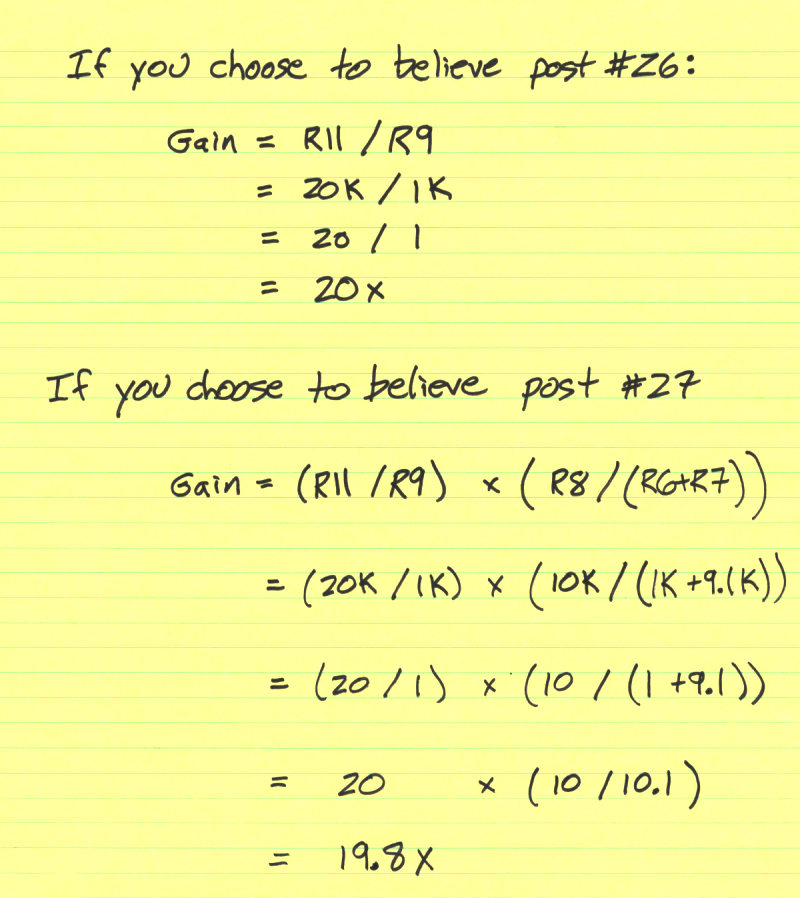 If you choose to believe post #26:
Gain = R11 / R9
= 20K / 1K
= 20 / 1
= 20x
If you choose to believe post #27
Gain = (R11 / R9) x (R8 / (R6+R7))
= (20K / 1K) x (10K / (1K + 9.1K))
= (20 / 1) x (10 / (1 + 9.1))
= 20 x (10 / 10.1)
= 19.8x